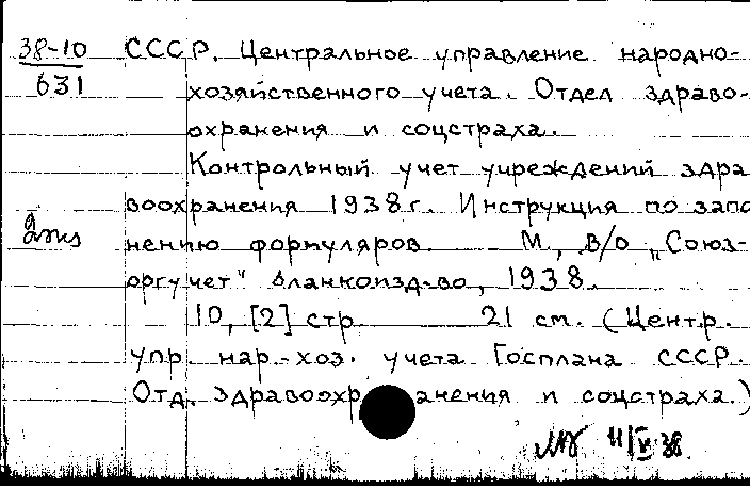 38-10 СССР. Центральное управление народно-
631 хозяйственного учета. Отдел здраво-
охранения и соцстраха.
Контрольный учет учреждений здра
воохранения 1938г. Инструкция по запо
нению формуляров. М., В/О „Союз-
оргучет" бланкоизд-во, 1938.
10, [2] стр 21 см. (Центр.
упр. нар.-хоз. учета Госплана СССР.
Отд. здравоохранения и соцстраха.)
11/V 38.